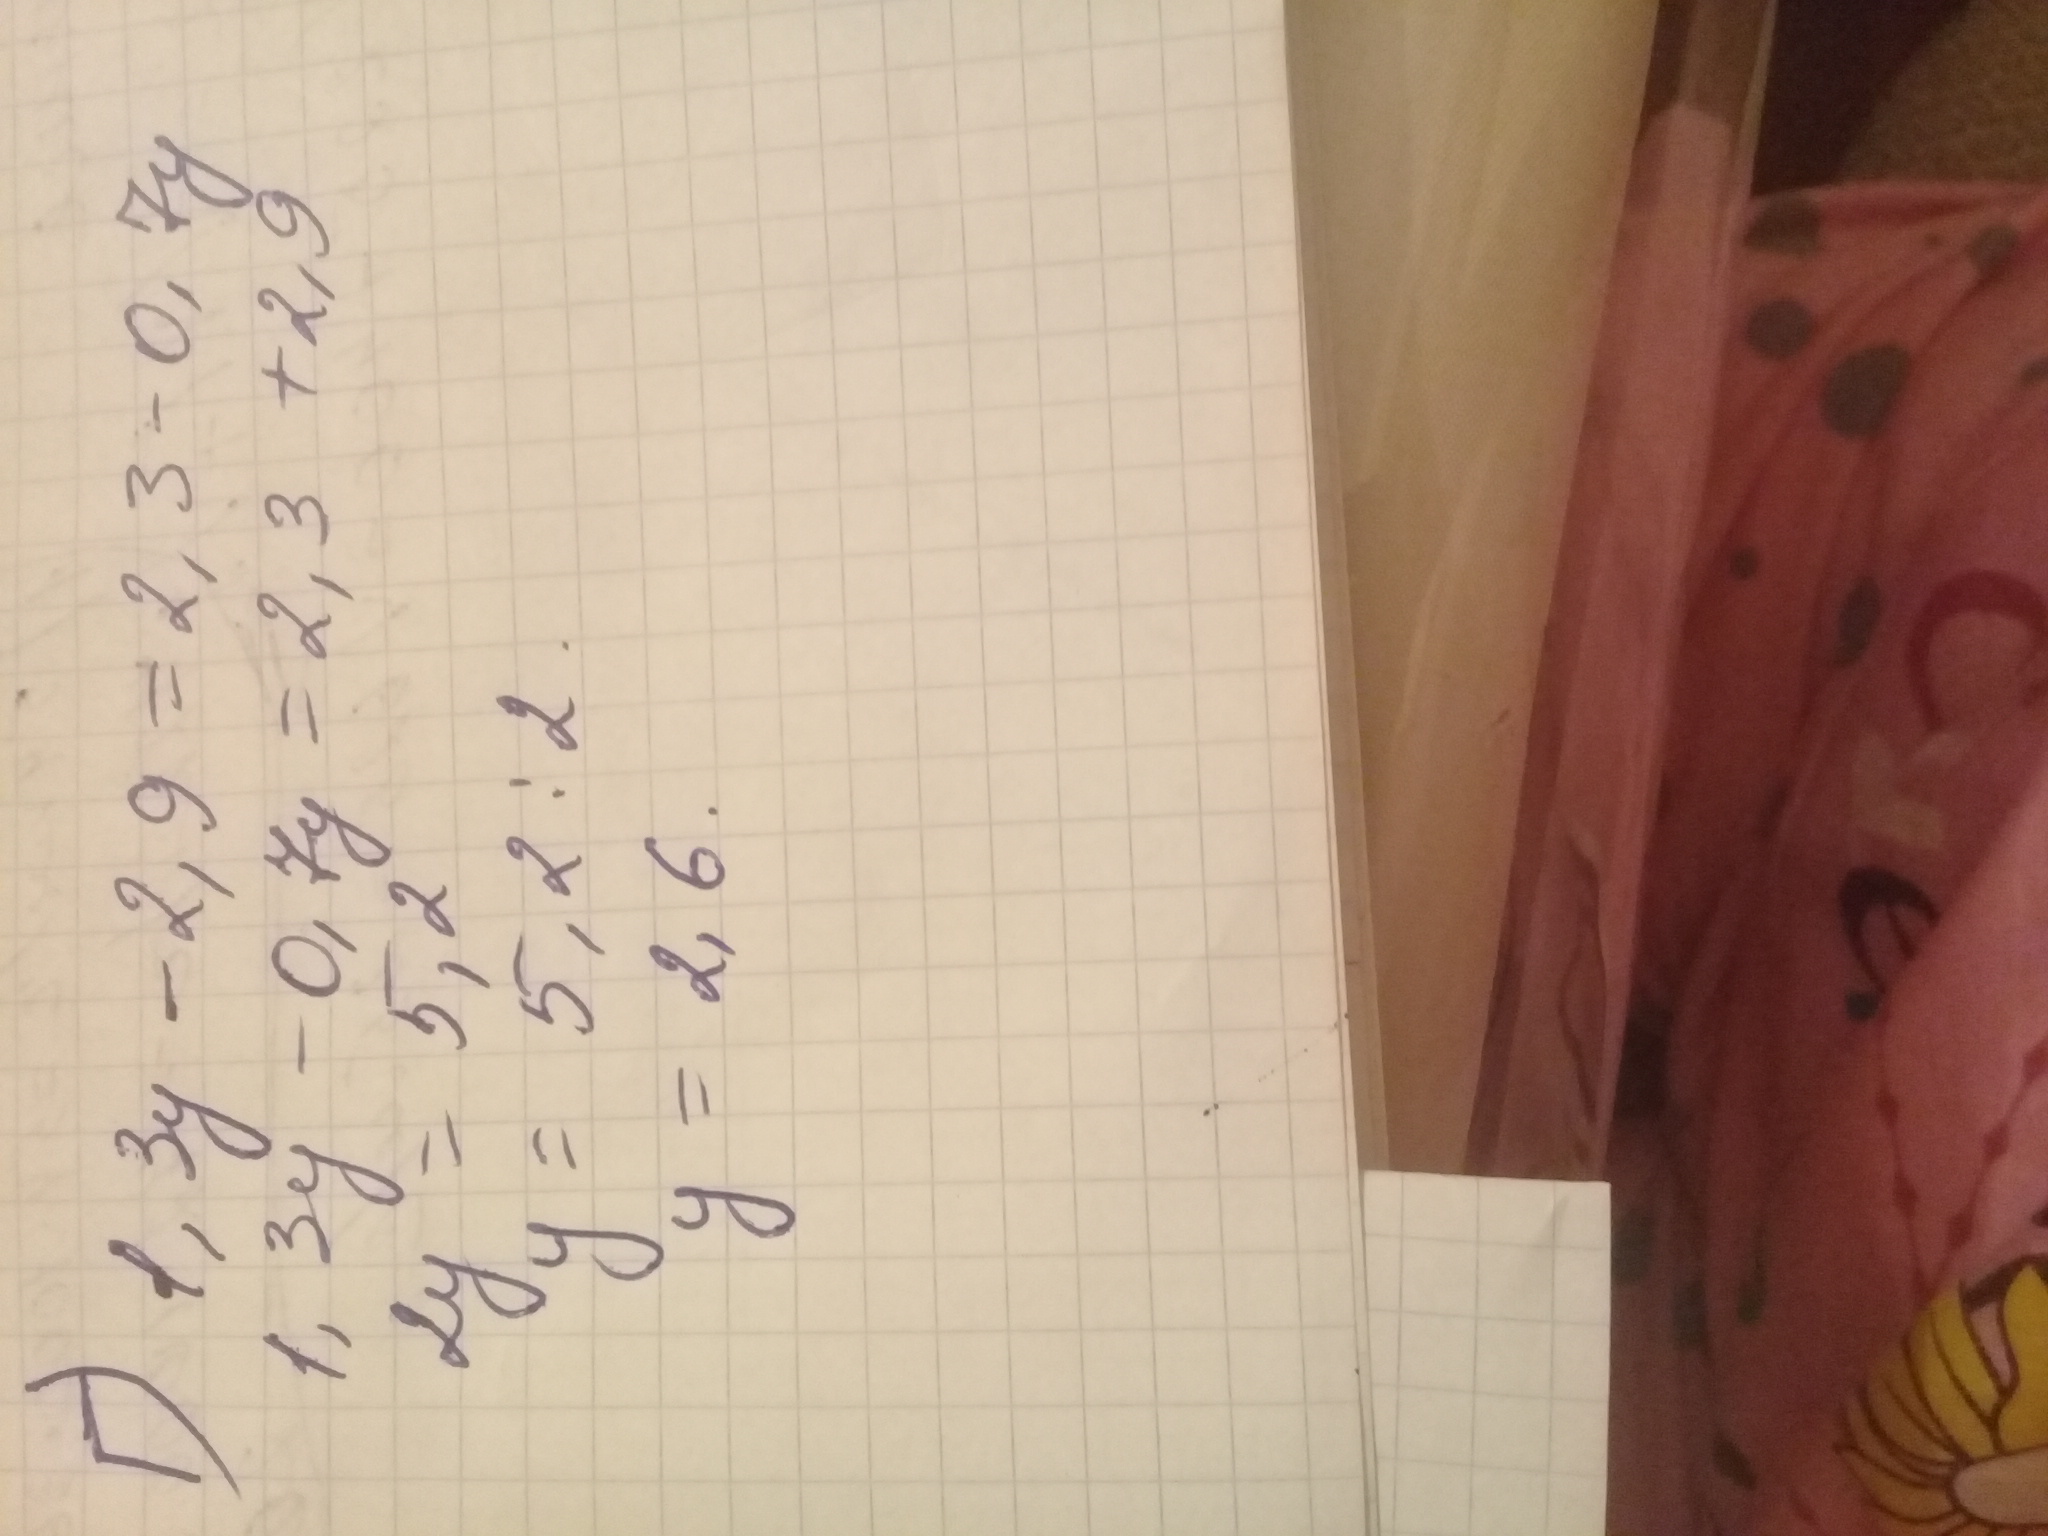 Г) 1,3y - 2,9 = 2,3 - 0,7y
1,3y - 0,7y = 2,3 + 2,9
2y = 5,2
y = 5,2 : 2.
y = 2,6.